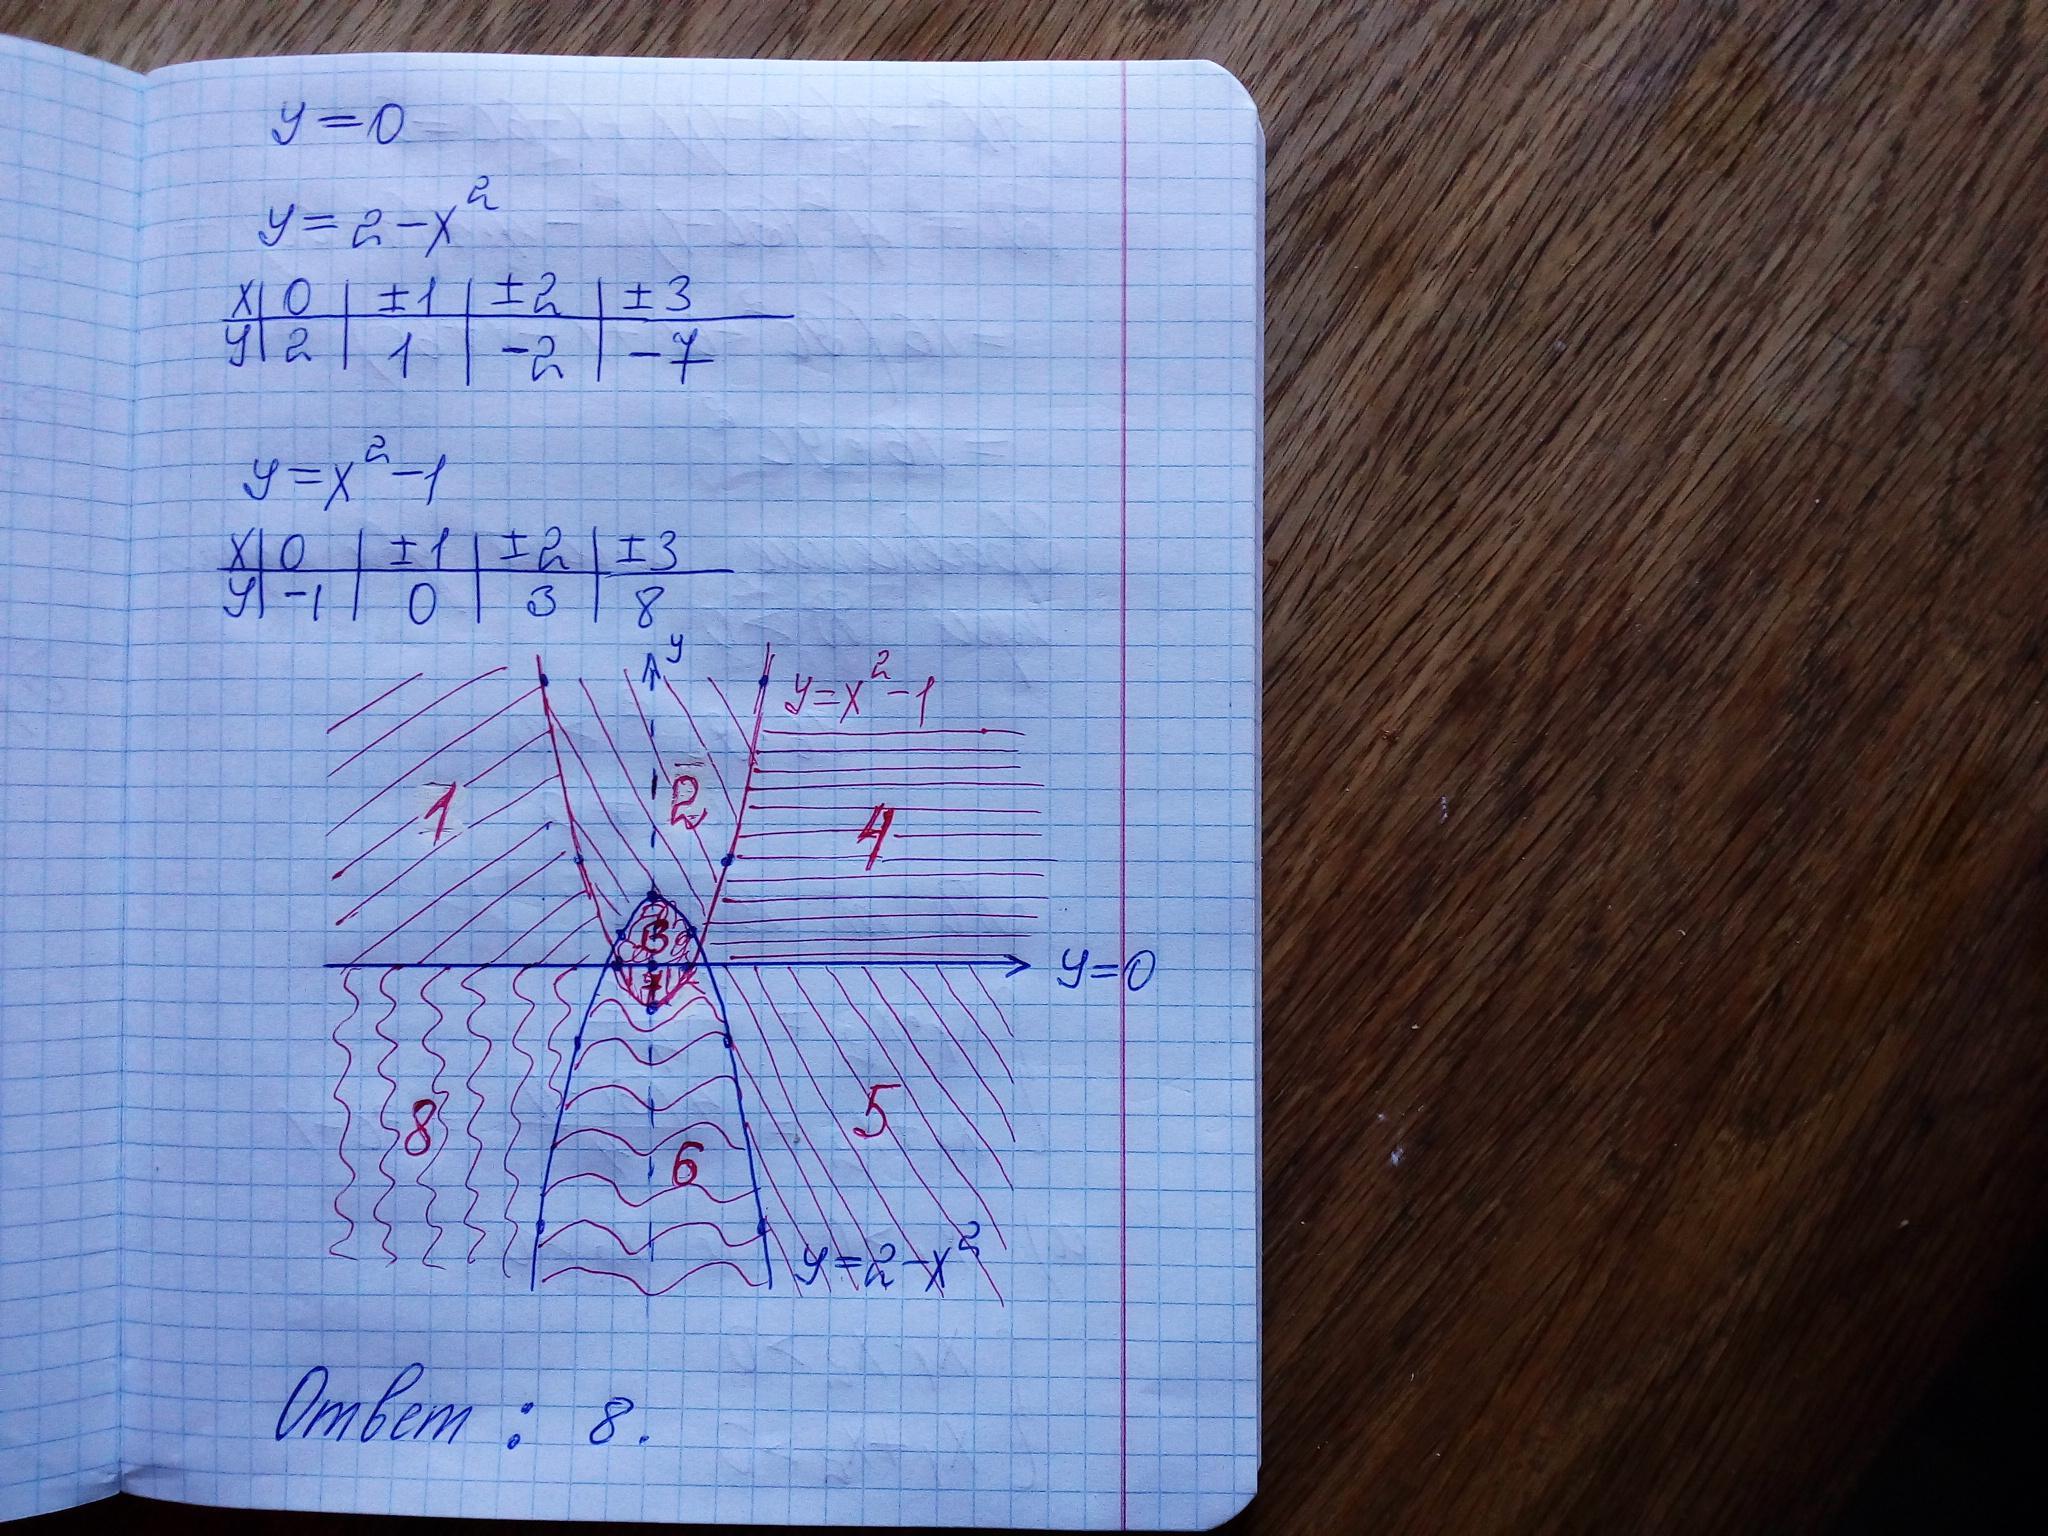 y=0
y=2-x²
x | 0 | ±1 | ±2 | ±3
y | 2 | 1 | -2 | -7
y=x²-1
x | 0 | ±1 | ±2 | ±3
y | -1 | 0 | 3 | 8
y
y=x²-1
1
2
4
3
y=0
7
8
5
6
y=2-x²
Ответ: 8.